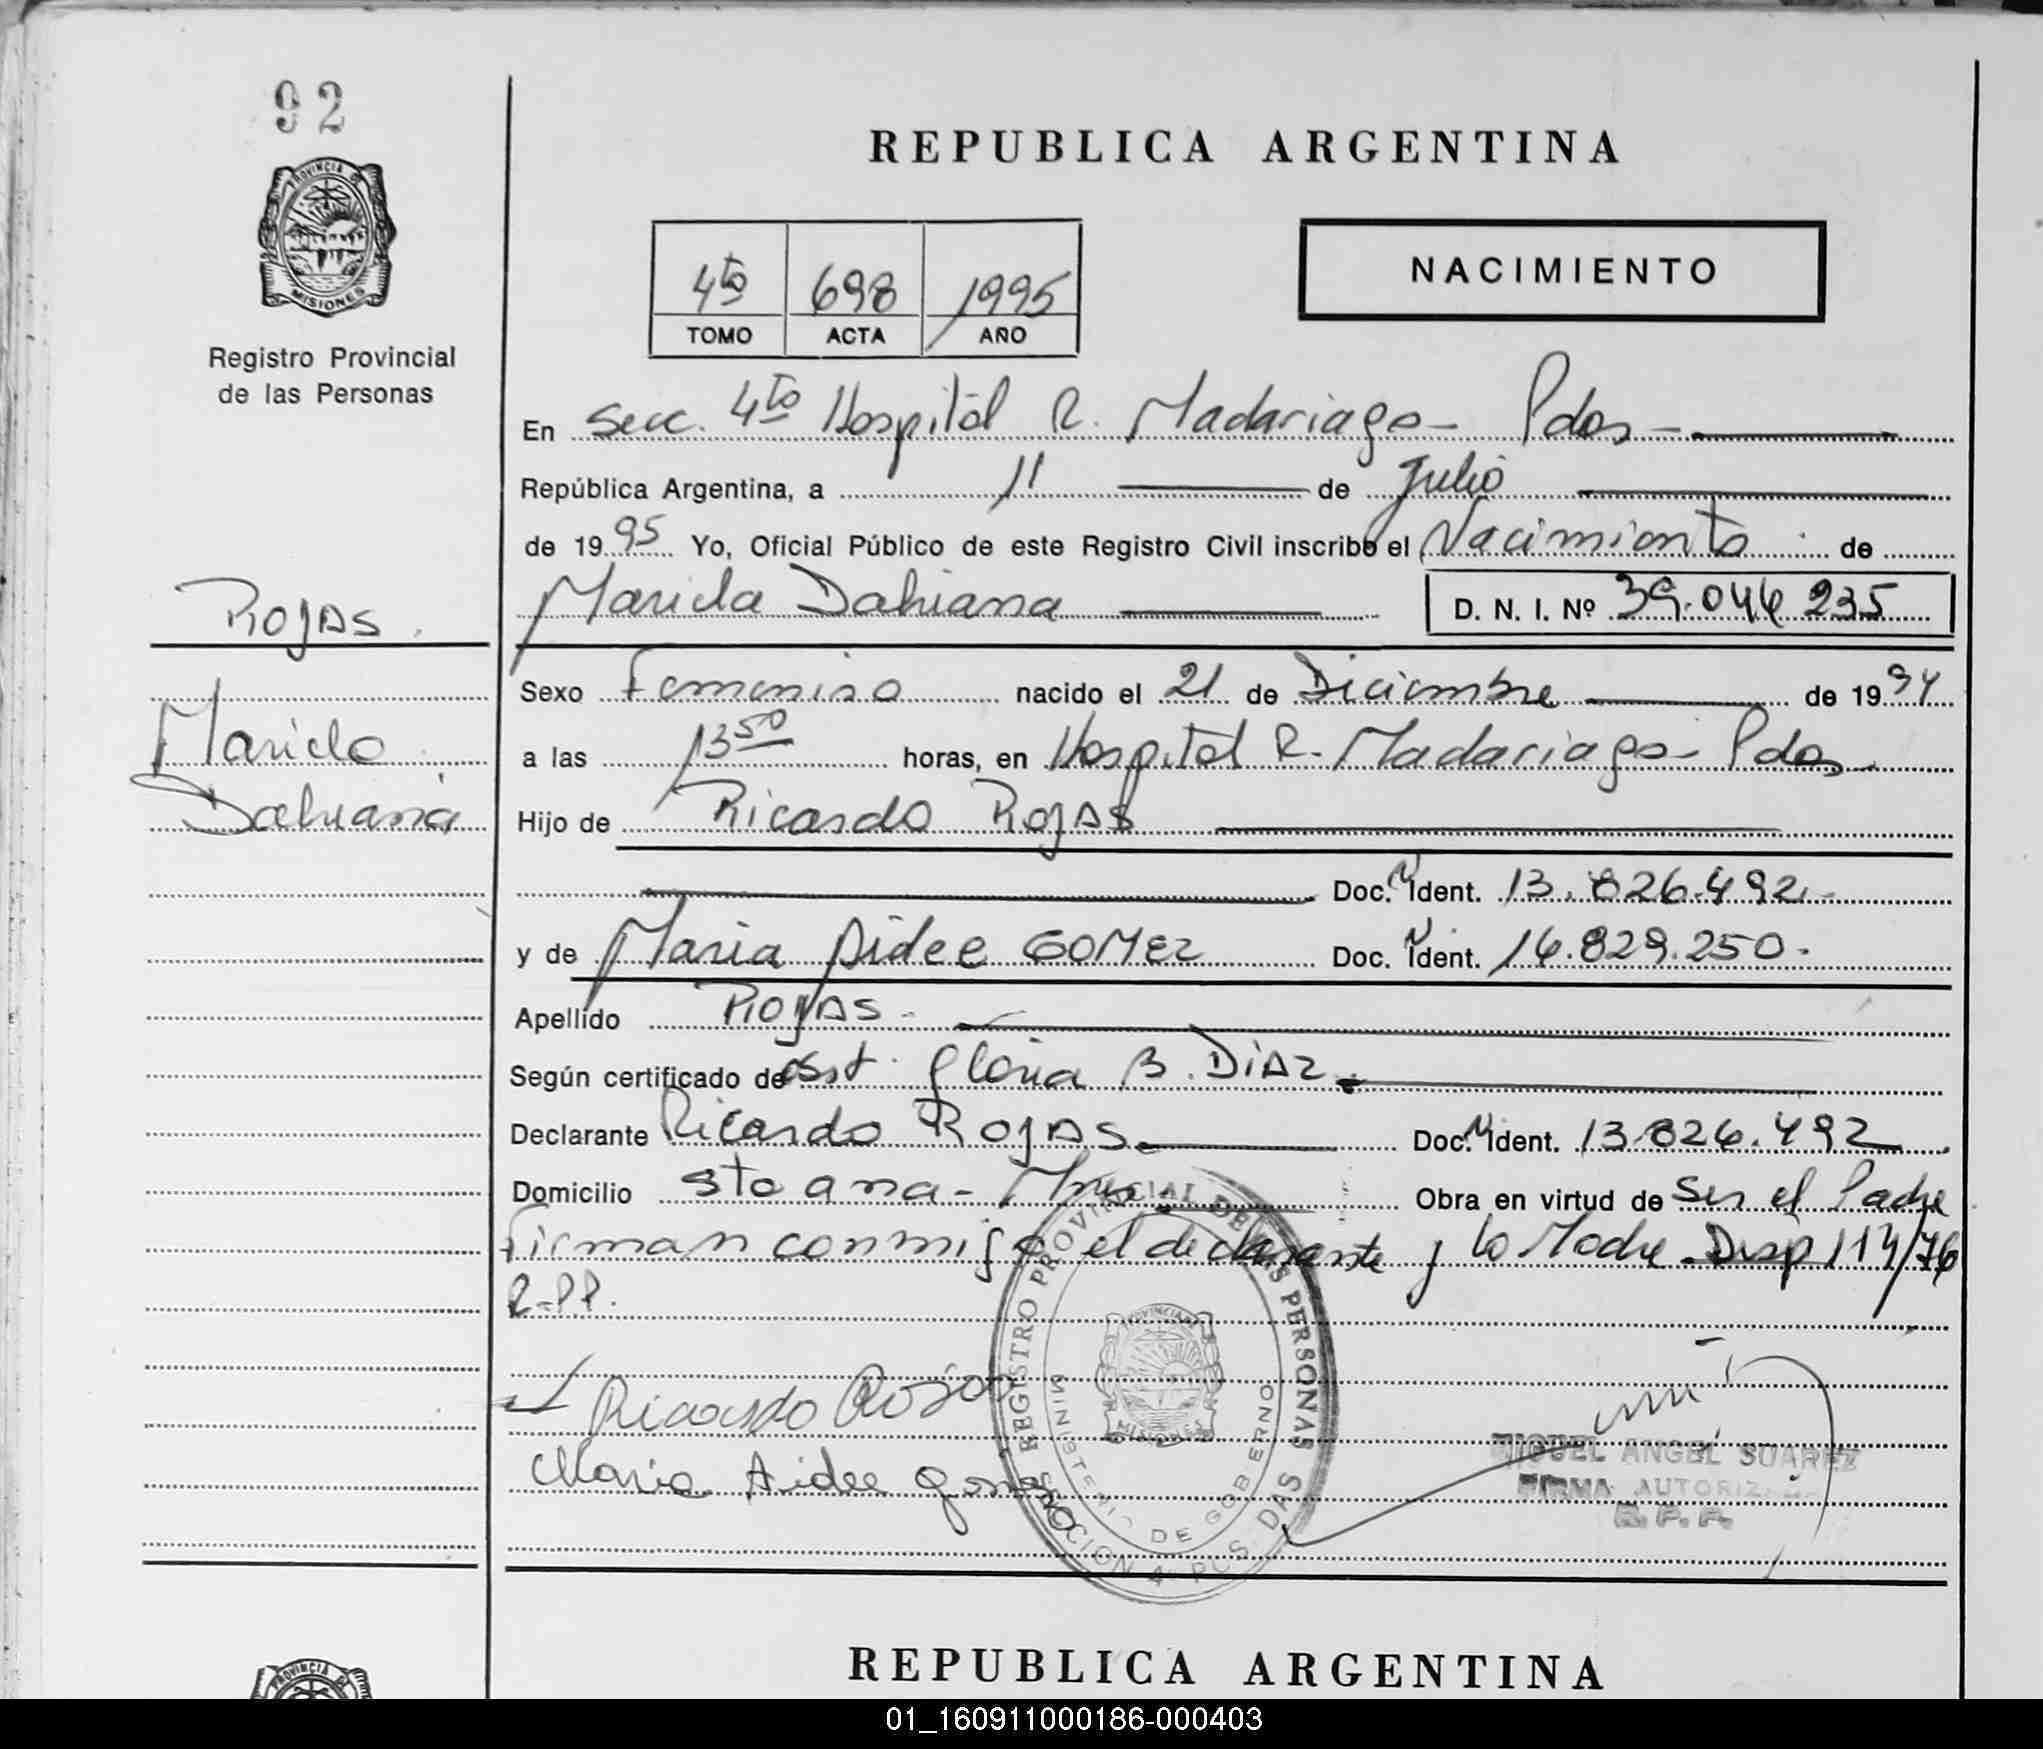 92
PROVINCIA DE
MISIONES
Registro Provincial
de las Personas
REPUBLICA ARGENTINA
4to 698 1995
TOMO ACTA AÑO
NACIMIENTO
En Secc. 4to Hospital R. Madariaga - Pdas -
República Argentina, a 11 de Julio
de 1995 Yo, Oficial Público de este Registro Civil inscribo el Nacimiento de
Mariela Dahiana D. N. I. Nº 39.044.235
ROJAS.
Mariela
Dahiana
Sexo Femenino nacido el 21 de Diciembre de 1994
a las 13 50 horas, en Hospital R. Madariaga - Pdas
Hijo de Ricardo ROJAS
Doc. N Ident. 13.826.492.-
y de Maria Aidee GOMEZ Doc. N Ident. 14.829.250.
Apellido ROJAS.
Según certificado de Obst. Gloria B. DIAZ.
Declarante Ricardo ROJAS. Doc. N Ident. 13.826.492
Domicilio Sta ana - Mnes. Obra en virtud de Ser el Padre
Firman conmigo el declarante y la Madre. Disp 114/76
R.P.P.
Ricardo Rojas
Maria Aidee
REGISTRO PROVINCIAL DE LAS PERSONAS
MINISTERIO DE GOBERNO
SECCION 4ª POSADAS
MISIONES
MIGUEL ANGEL SUAREZ
FIRMA AUTORIZADA
R. P. P.
REPUBLICA ARGENTINA
PROVINCIA
01_160911000186-000403